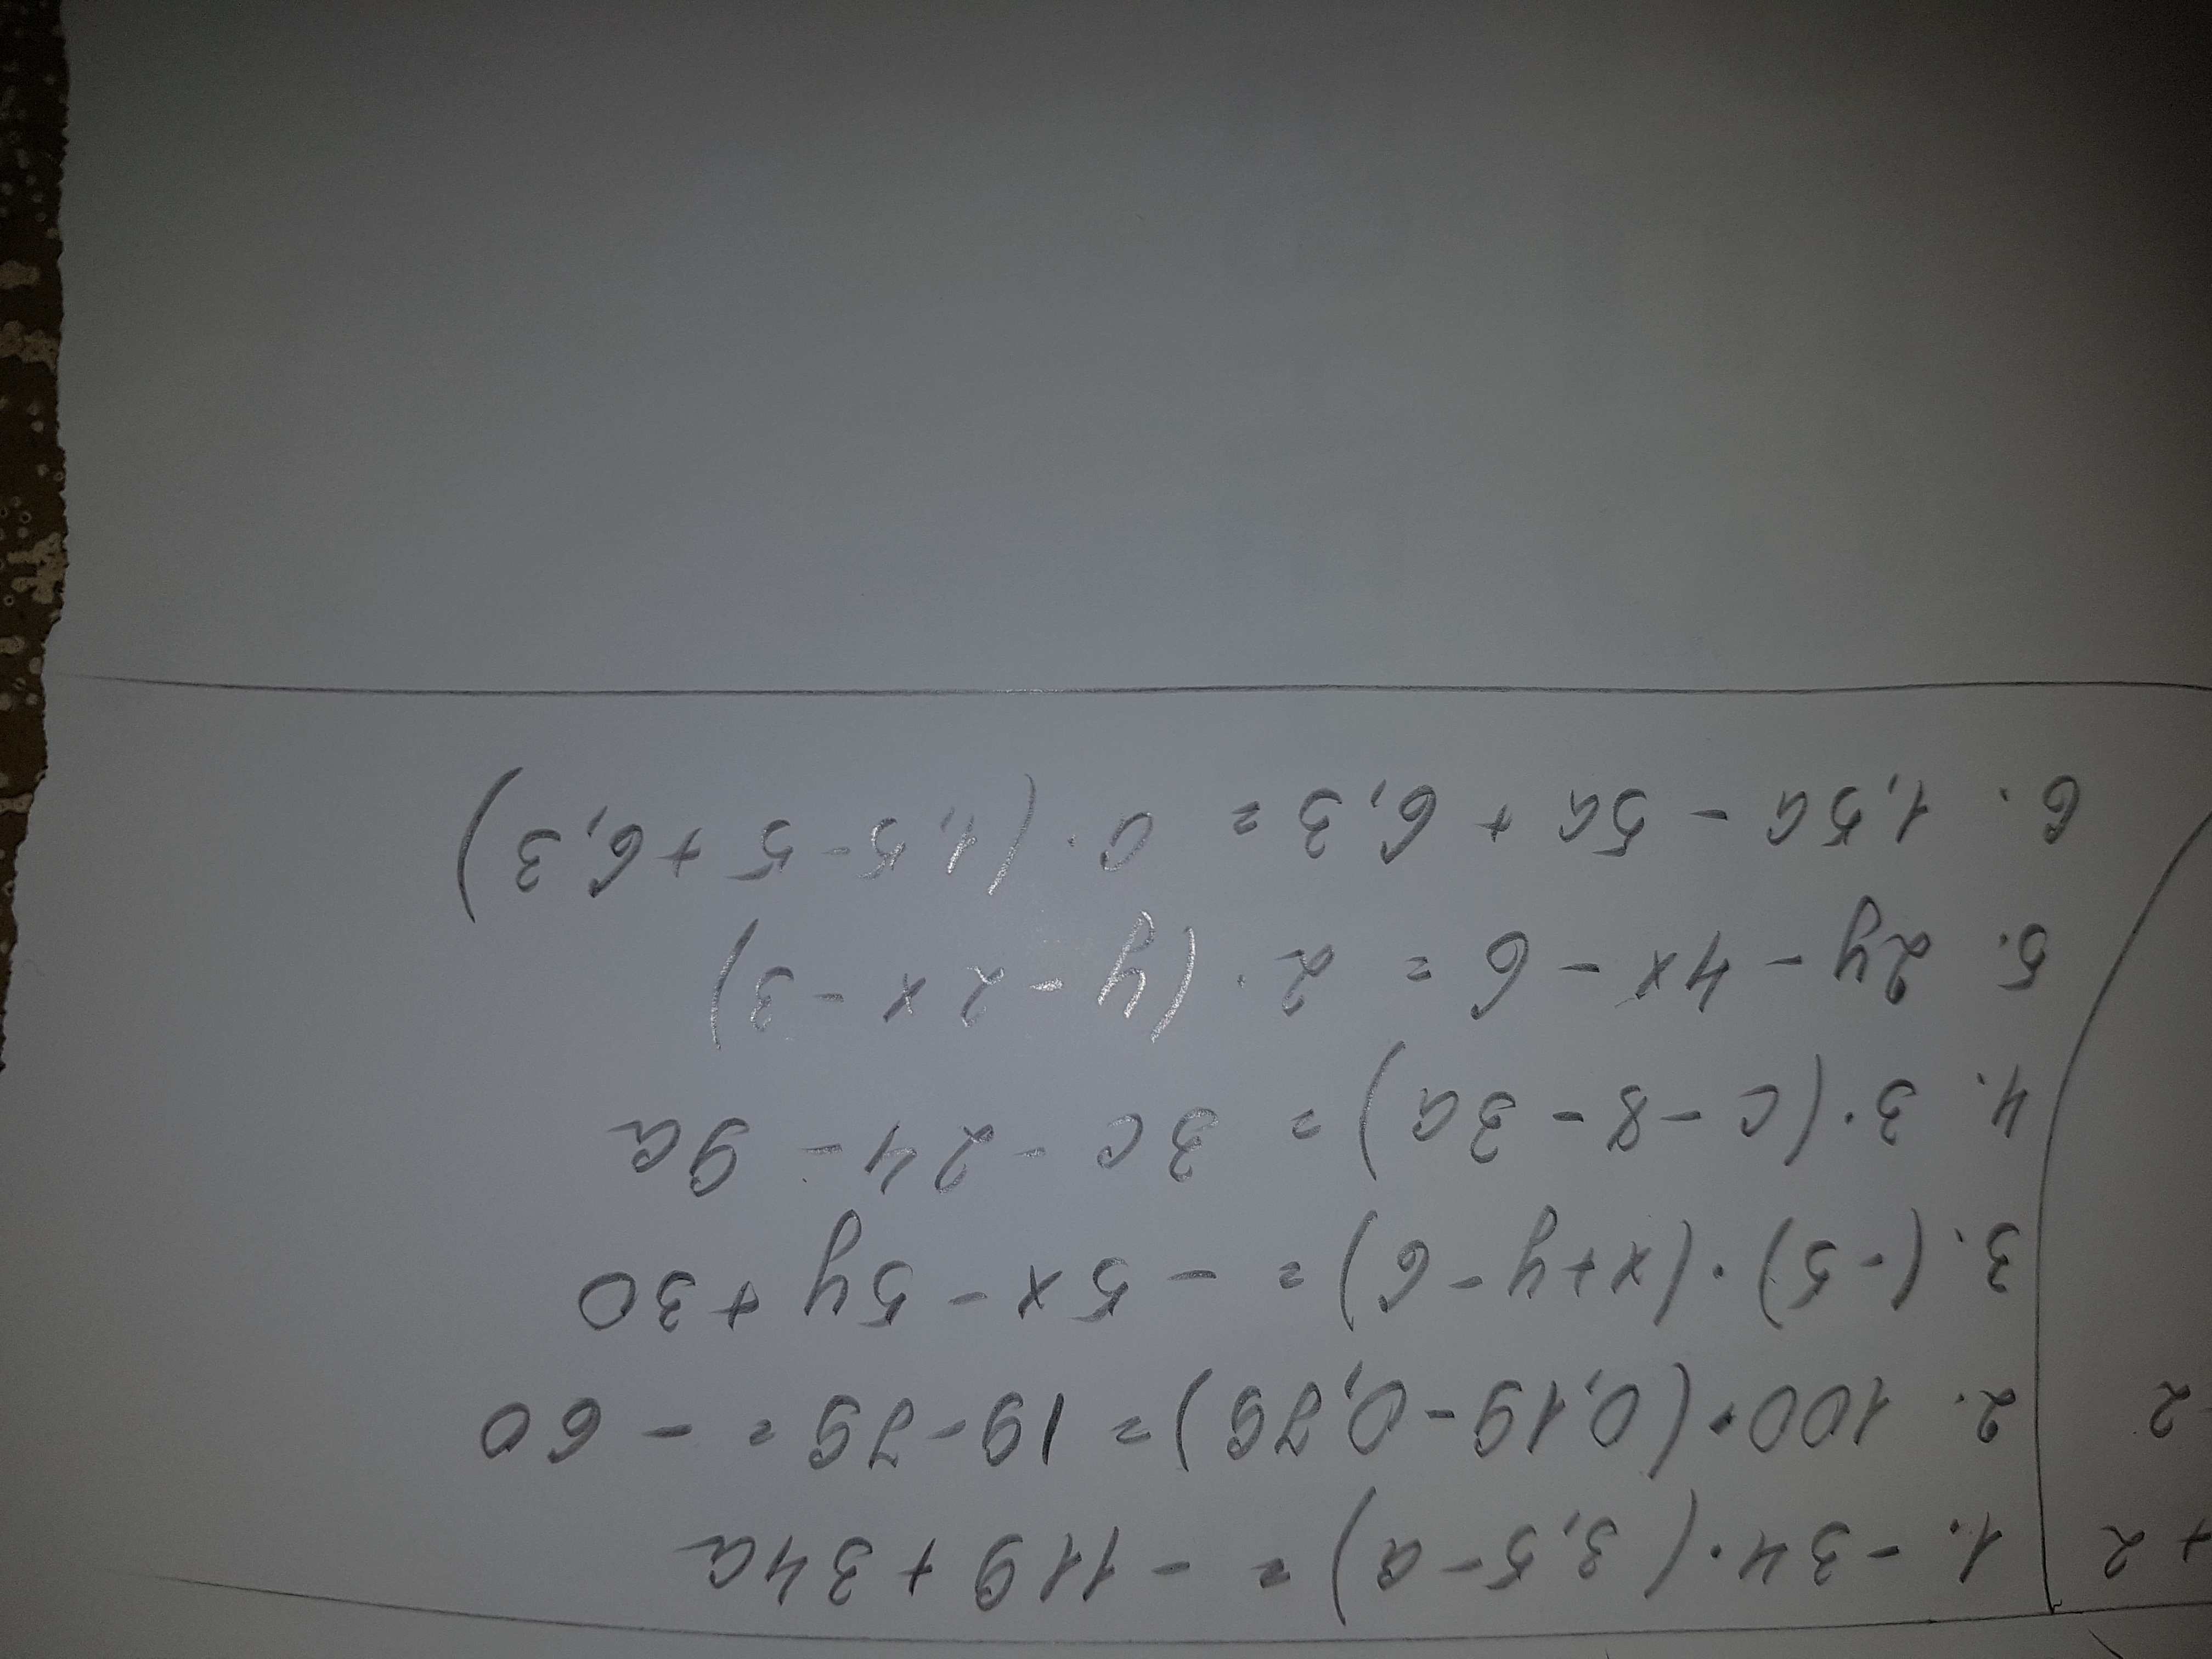 1. -34·(3,5-a) = -119+34a
2. 100·(0,19-0,79)= 19-79= -60
3. (-5)·(x+y-6)= -5x-5y+30
4. 3·(c-8-3a)= 3c-24-9a
5. 2y-4x-6= 2·(y-2x-3)
6. 1,5a-5a+6,3= a·(1,5-5+6,3)
+2
-2